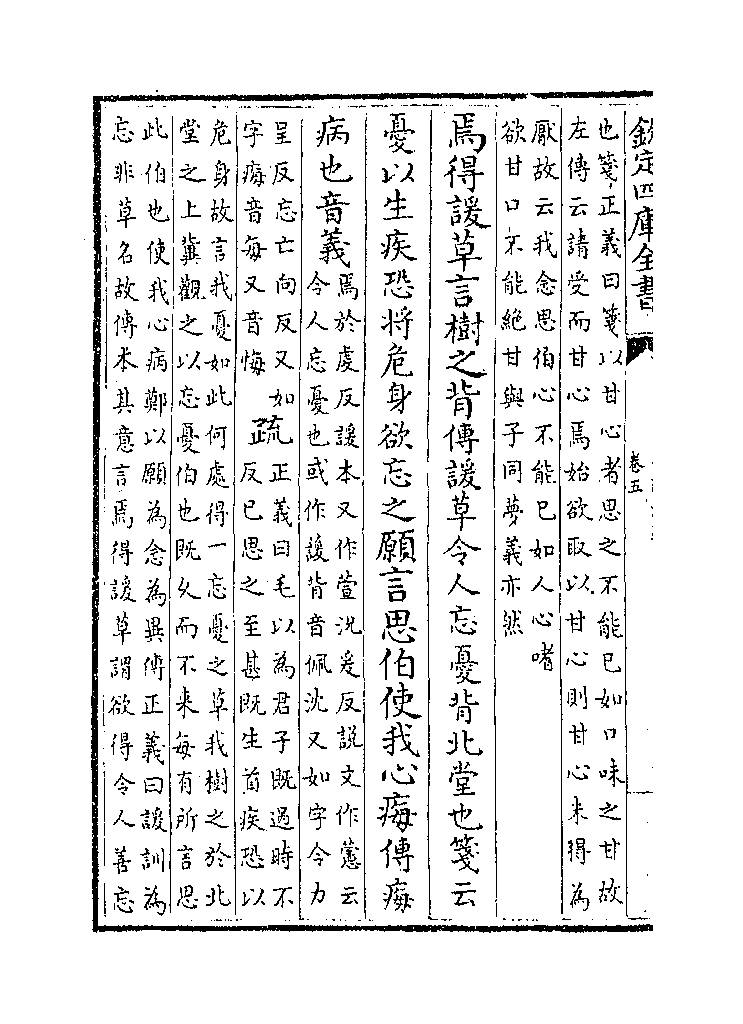 欽定四庫全書
卷五
也箋正義曰箋以甘心者思之不能已如口味之甘故
左傳云請受而甘心焉始欲取以甘心則甘心未得為
厭故云我念思伯心不能已如人心嗜
欲甘口不能絶甘與子同夢義亦然
焉得諼草言樹之背傳諼草令人忘憂背北堂也箋云
憂以生疾恐将危身欲忘之願言思伯使我心痗傳痗
病也音義
焉於虔反諼本又作萱况爰反説文作藼云
令人忘憂也或作蘐背音佩沈又如字令力
呈反忘亡向反又如
字痗音每又音悔
疏
正義曰毛以為君子既過時不
反已思之至甚既生首疾恐以
危身故言我憂如此何處得一忘憂之草我樹之於北
堂之上冀觀之以忘憂伯也既久而不来每有所言思
此伯也使我心病鄭以願為念為異傳正義曰諼訓為
忘非草名故傳本其意言焉得諼草謂欲得令人善忘